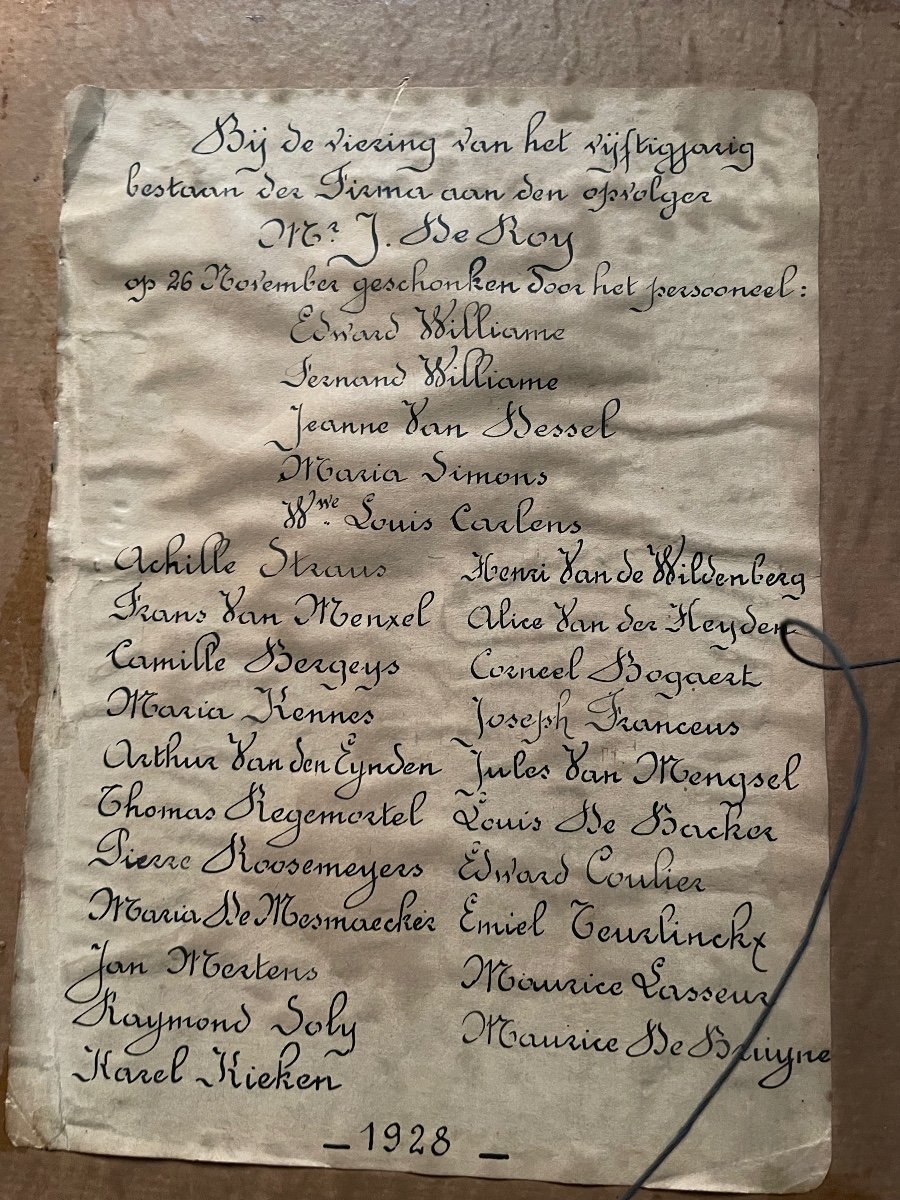 Bij de viering van het vijftigjarig
bestaan der Firma aan den opvolger
Mr. J. De Roy
op 26 November geschonken door het persooneel:
Edward Williame
Fernand Williame
Jeanne Van Dessel
Maria Simons
Wwe Louis Carlens
Achille Straus
Frans Van Menxel
Camille Bergeys
Maria Kennes
Arthur Van den Eynden
Thomas Regemortel
Pierre Roosemeyers
Maria De Mesmaecker
Jan Mertens
Raymond Soly
Karel Kieken
Henri Van de Wildenberg
Alice Van der Heyden
Corneel Bogaert
Joseph Franceus
Jules Van Mengsel
Louis De Backer
Edward Coulier
Emiel Teurlinckx
Maurice Lasseur
Maurice De Bruyne
– 1928 –